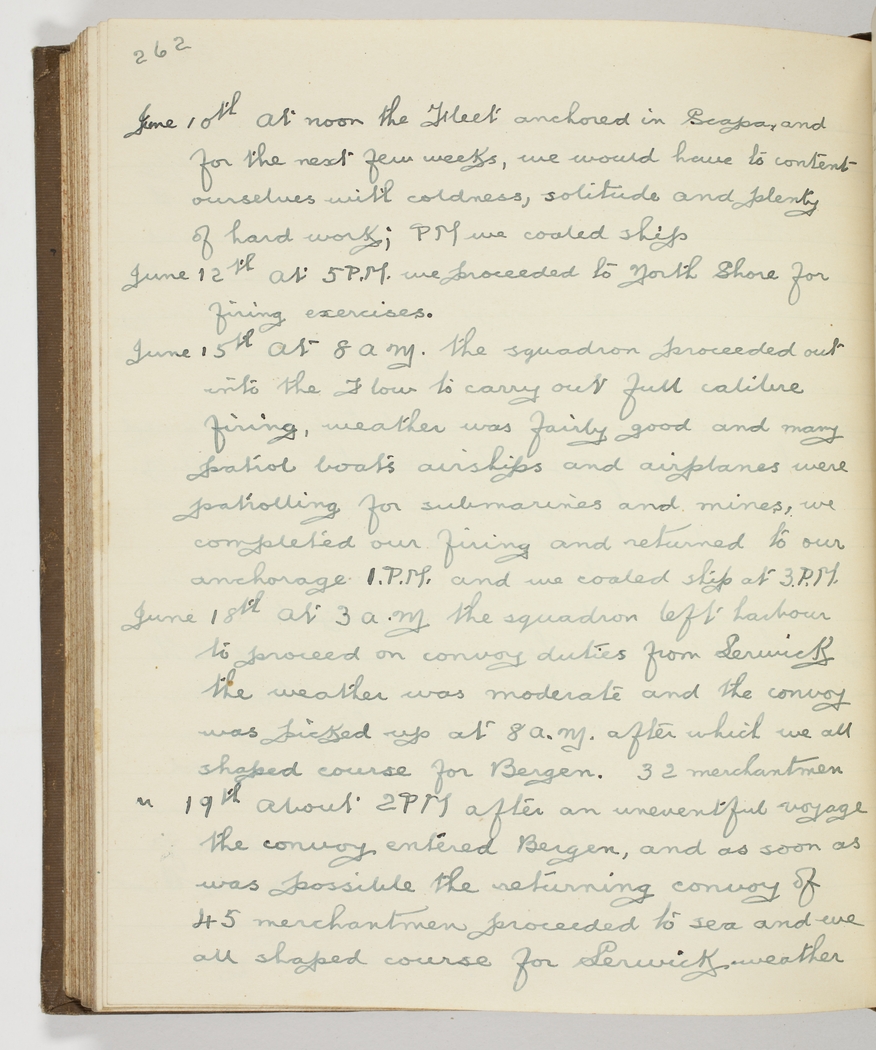 262
June 10th At noon the Fleet anchored in Scapa, and
for the next few weeks, we would have to content
ourselves with coldness, solitude and plenty
of hard work; PM we coaled ship
June 12th At 5P.M. we proceeded to North Shore for
firing exercises.
June 15th At 8 a.m. the squadron proceeded out
into the Flow to carry out full calibre
firing, weather was fairly good and many
patrol boats airships and airplanes were
patrolling for submarines and mines, we
completed our firing and returned to our
anchorage 1.P.M. and we coaled ship at 3.P.M.
June 18th At 3 a.m the squadron left harbour
to proceed on convoy duties from Lerwick
the weather was moderate and the convoy
was picked up at 8 a.m. after which we all
shaped course for Bergen. 32 merchantmen
" 19th About 2PM after an uneventful voyage
the convoy entered Bergen, and as soon as
was possible the returning convoy of
45 merchantmen proceeded to sea and we
all shaped course for Lerwick, weather